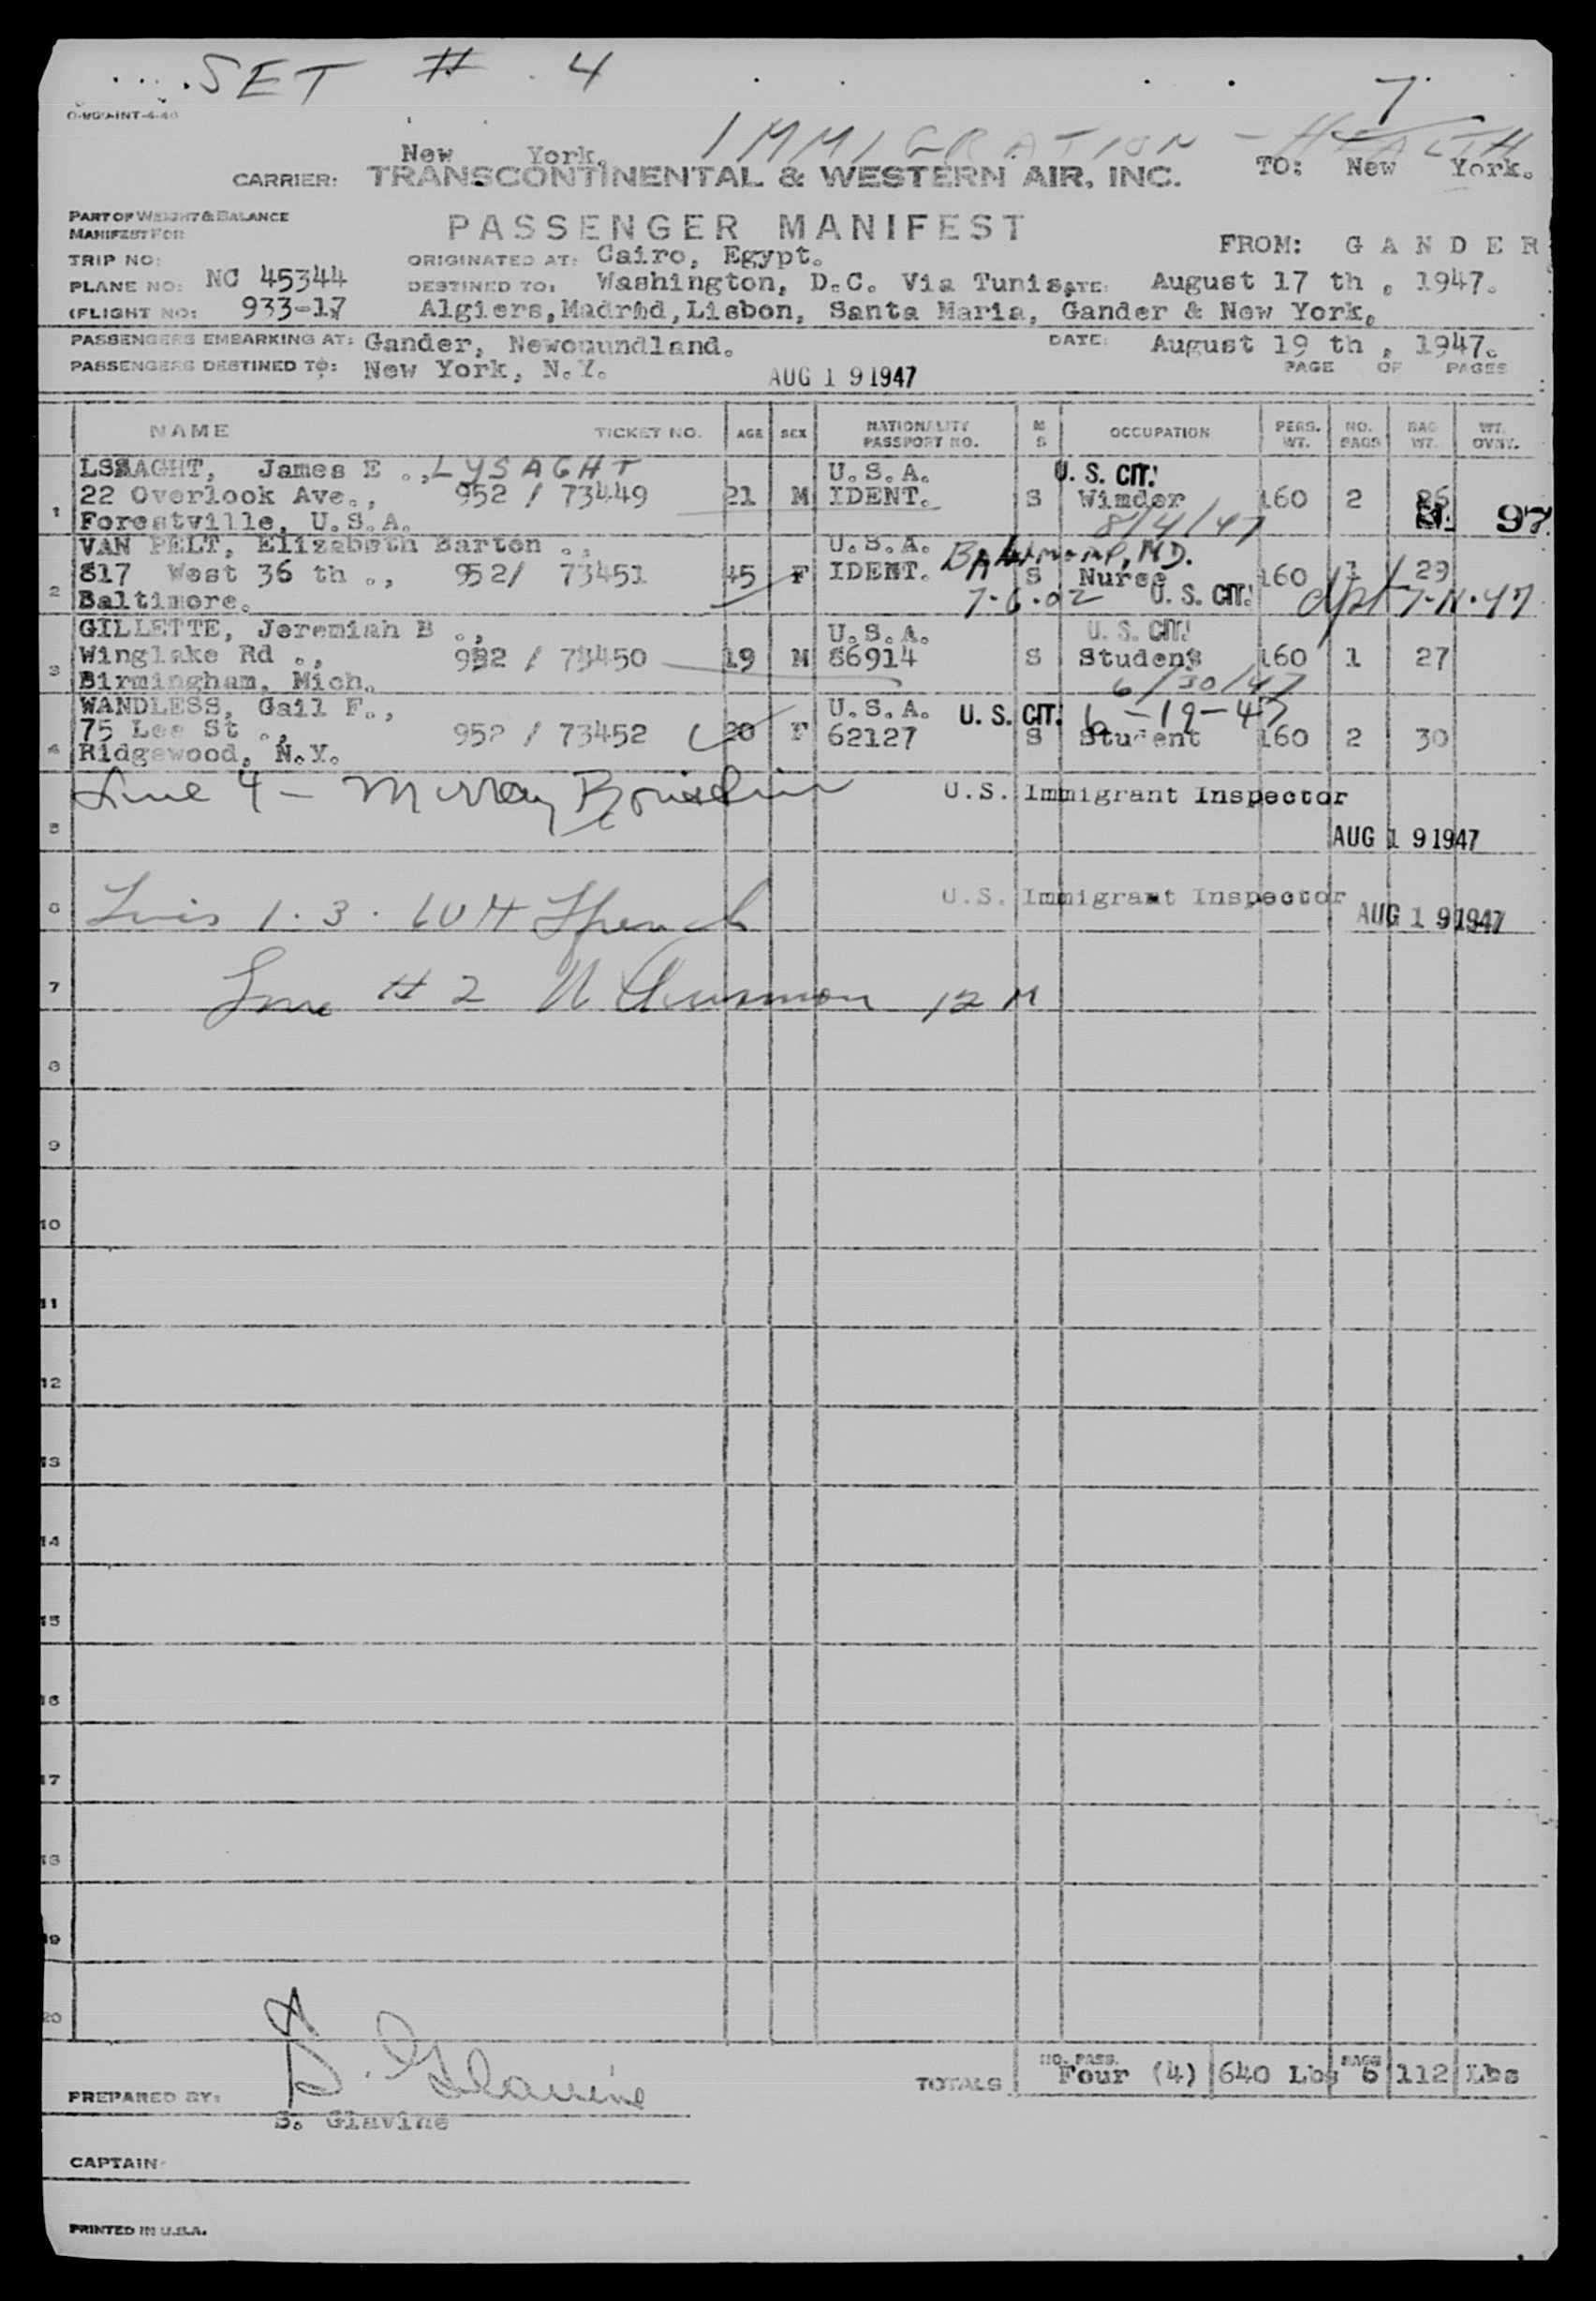 SET # 4
7
O-9GO-INT-4-46
IMMIGRATION - HEALTH
New York.
CARRIER: TRANSCONTINENTAL & WESTERN AIR, INC. TO: New York.
PART OF WEIGHT & BALANCE
MANIFEST FOR
PASSENGER MANIFEST
FROM: GANDER
TRIP NO: ORIGINATED AT: Cairo, Egypt.
PLANE NO: NC 45344 DESTINED TO: Washington, D.C. Via Tunis, DATE: August 17 th , 1947.
(FLIGHT NO: 933-17 Algiers, Madrid, Lisbon, Santa Maria, Gander & New York.
PASSENGERS EMBARKING AT: Gander, Newouundland. DATE: August 19 th , 1947.
PASSENGERS DESTINED TO: New York, N.Y. AUG 19 1947 PAGE OF PAGES
NAME TICKET NO. AGE SEX NATIONALITY PASSPORT NO. M S OCCUPATION PERS. WT. NO. BAGS BAG WT. WT. OVNT.
LSSAGHT, James E ., LYSAGHT U.S.A. U. S. CIT.
1 22 Overlook Ave., 952 / 73449 21 M IDENT. S Wimder 160 2 26 97
Forestville, U.S.A. 8/4/47
VAN PELT, Elizabeth Barton ., U.S.A. Baltimore, MD.
2 817 West 36 th ., 952/ 73451 45 F IDENT. S Nurse 160 1 29
Baltimore. 7-6-02 U. S. CIT. 7-11-47
GILLETTE, Jeremiah B ., U.S.A. U. S. CIT.
3 Winglake Rd ., 952 / 73450 19 M 86914 S Student 160 1 27
Birmingham, Mich. 6/30/47
WANDLESS, Gail F., U.S.A. U. S. CIT. 6-19-47
4 75 Lee St ., 952 / 73452 20 F 62127 S Student 160 2 30
Ridgewood, N.Y.
Line 4 - Murray U.S. Immigrant Inspector
5 AUG 19 1947
6 1. 3. U.S. Immigrant Inspector AUG 19 1947
7 Line # 2 12 M
8
9
10
11
12
13
14
15
16
17
18
19
20
S. Glavine
TOTALS NO. PASS. Four (4) 640 Lbs BAGS 6 112 Lbs
PREPARED BY:
S. Glavine
CAPTAIN:
PRINTED IN U.S.A.